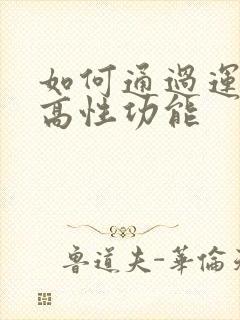 如何通過運
高性功能
魯道夫-華倫